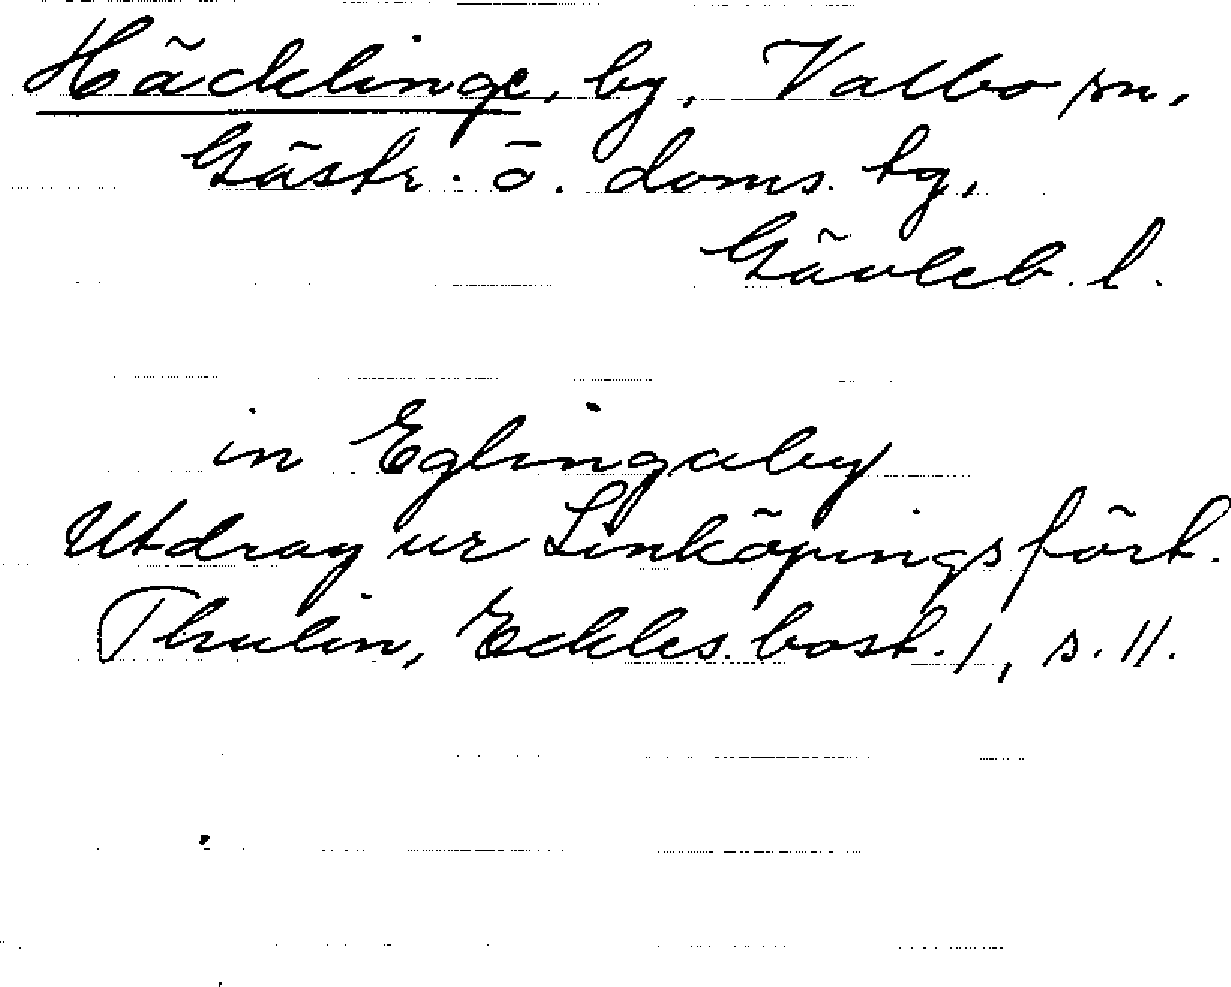 Häcklinge, by, Valbo sn,
Gästr. ö. doms. tg,
Gävleb. l.
in Eglingaby
Utdrag ur Linköpingsfört.
Thulin, Eckles. bost. 1, s. 11.